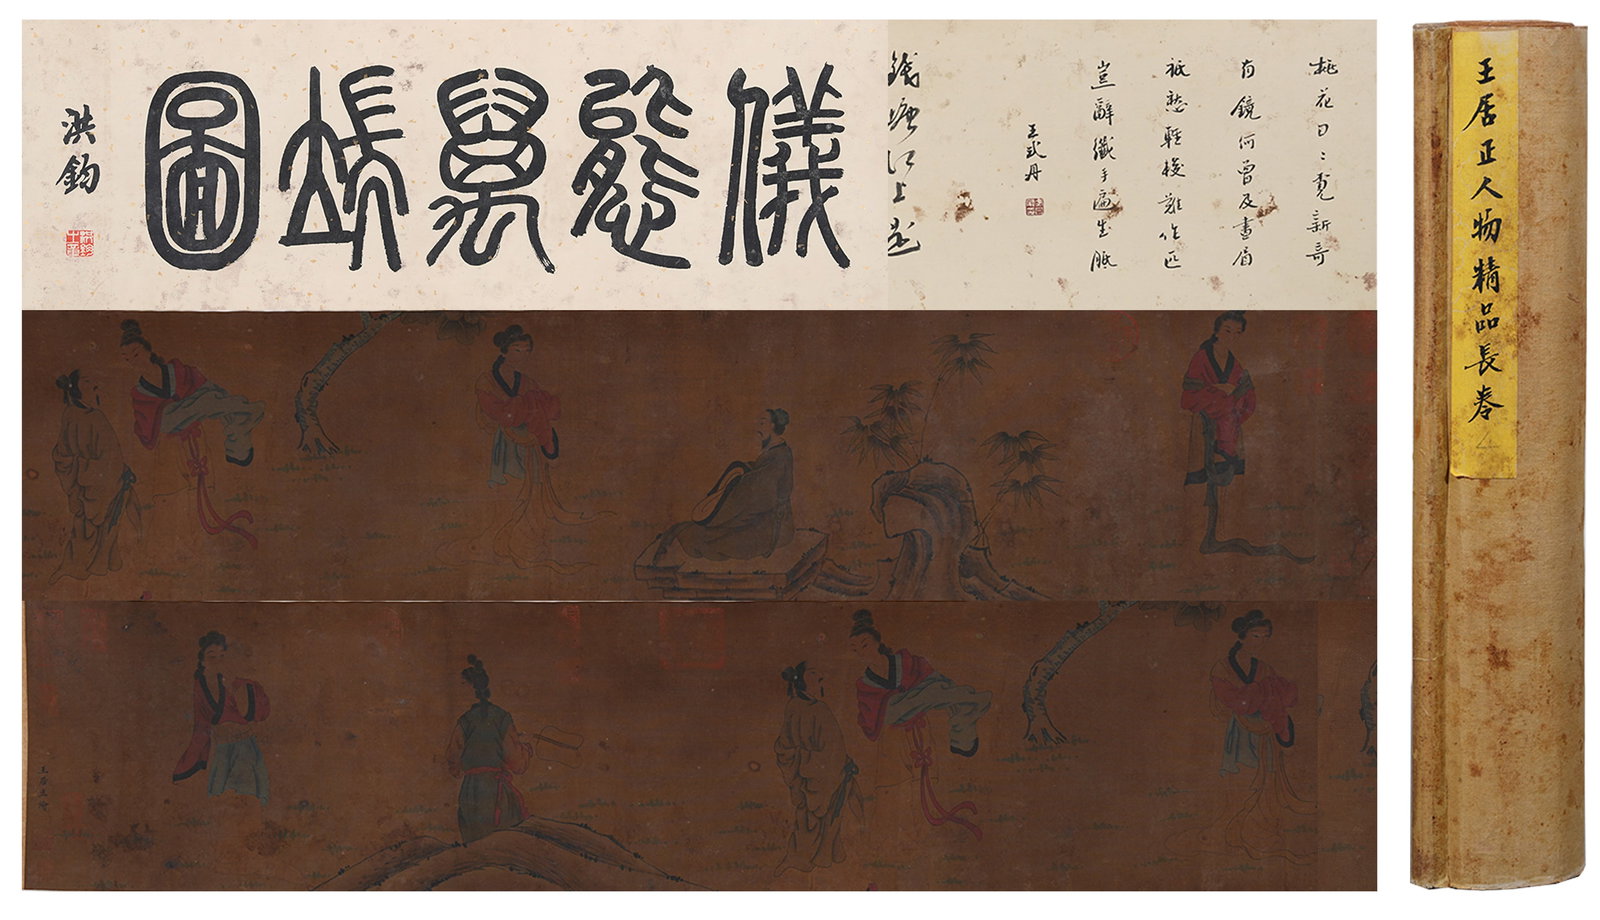 桃花日〻覓新奇
有鏡何曾及畫眉
祗愁輕梭難作匹
豈辭纖手遍生胝
王式丹
錢塘江上
儀態萬端圖
洪鈞
王居正繪
王居正人物精品長卷